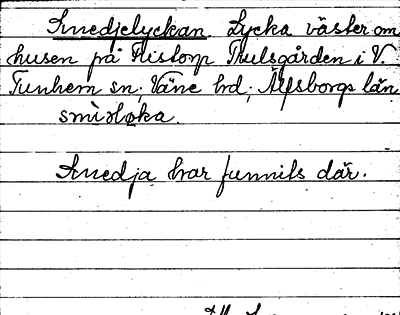 Smedjelyckan. Lycka väster om
husen på Ristorp Trulsgården i V.
Tunhem sn; Väne hd; Älfsborgs län
Smedja har funnits där.